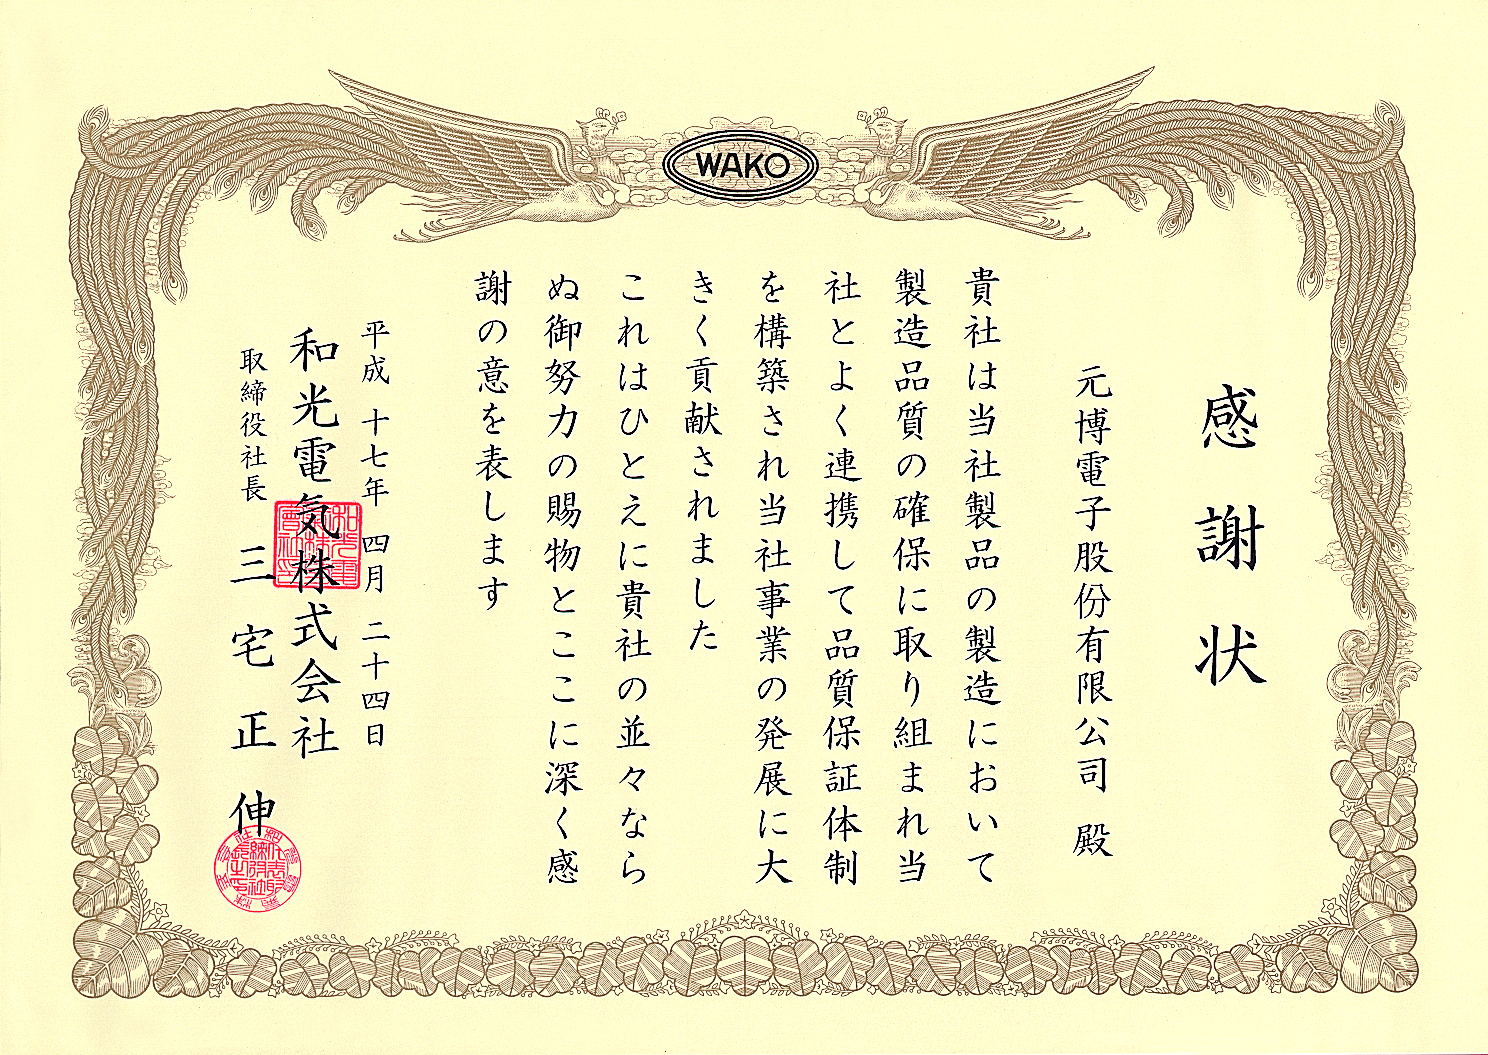 WAKO
感謝状
元博電子股份有限公司 殿
貴社は当社製品の製造において
製造品質の確保に取り組まれ当
社とよく連携して品質保証体制
を構築され当社事業の発展に大
きく貢献されました
これはひとえに貴社の並々なら
ぬ御努力の賜物とここに深く感
謝の意を表します
平成 十七年 四月 二十四日
和光電気株式会社
取締役社長 三宅正伸